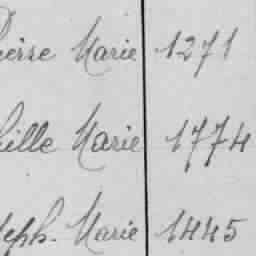 Pierre Marie 1271
ille Marie 1774
seph. Marie 1445